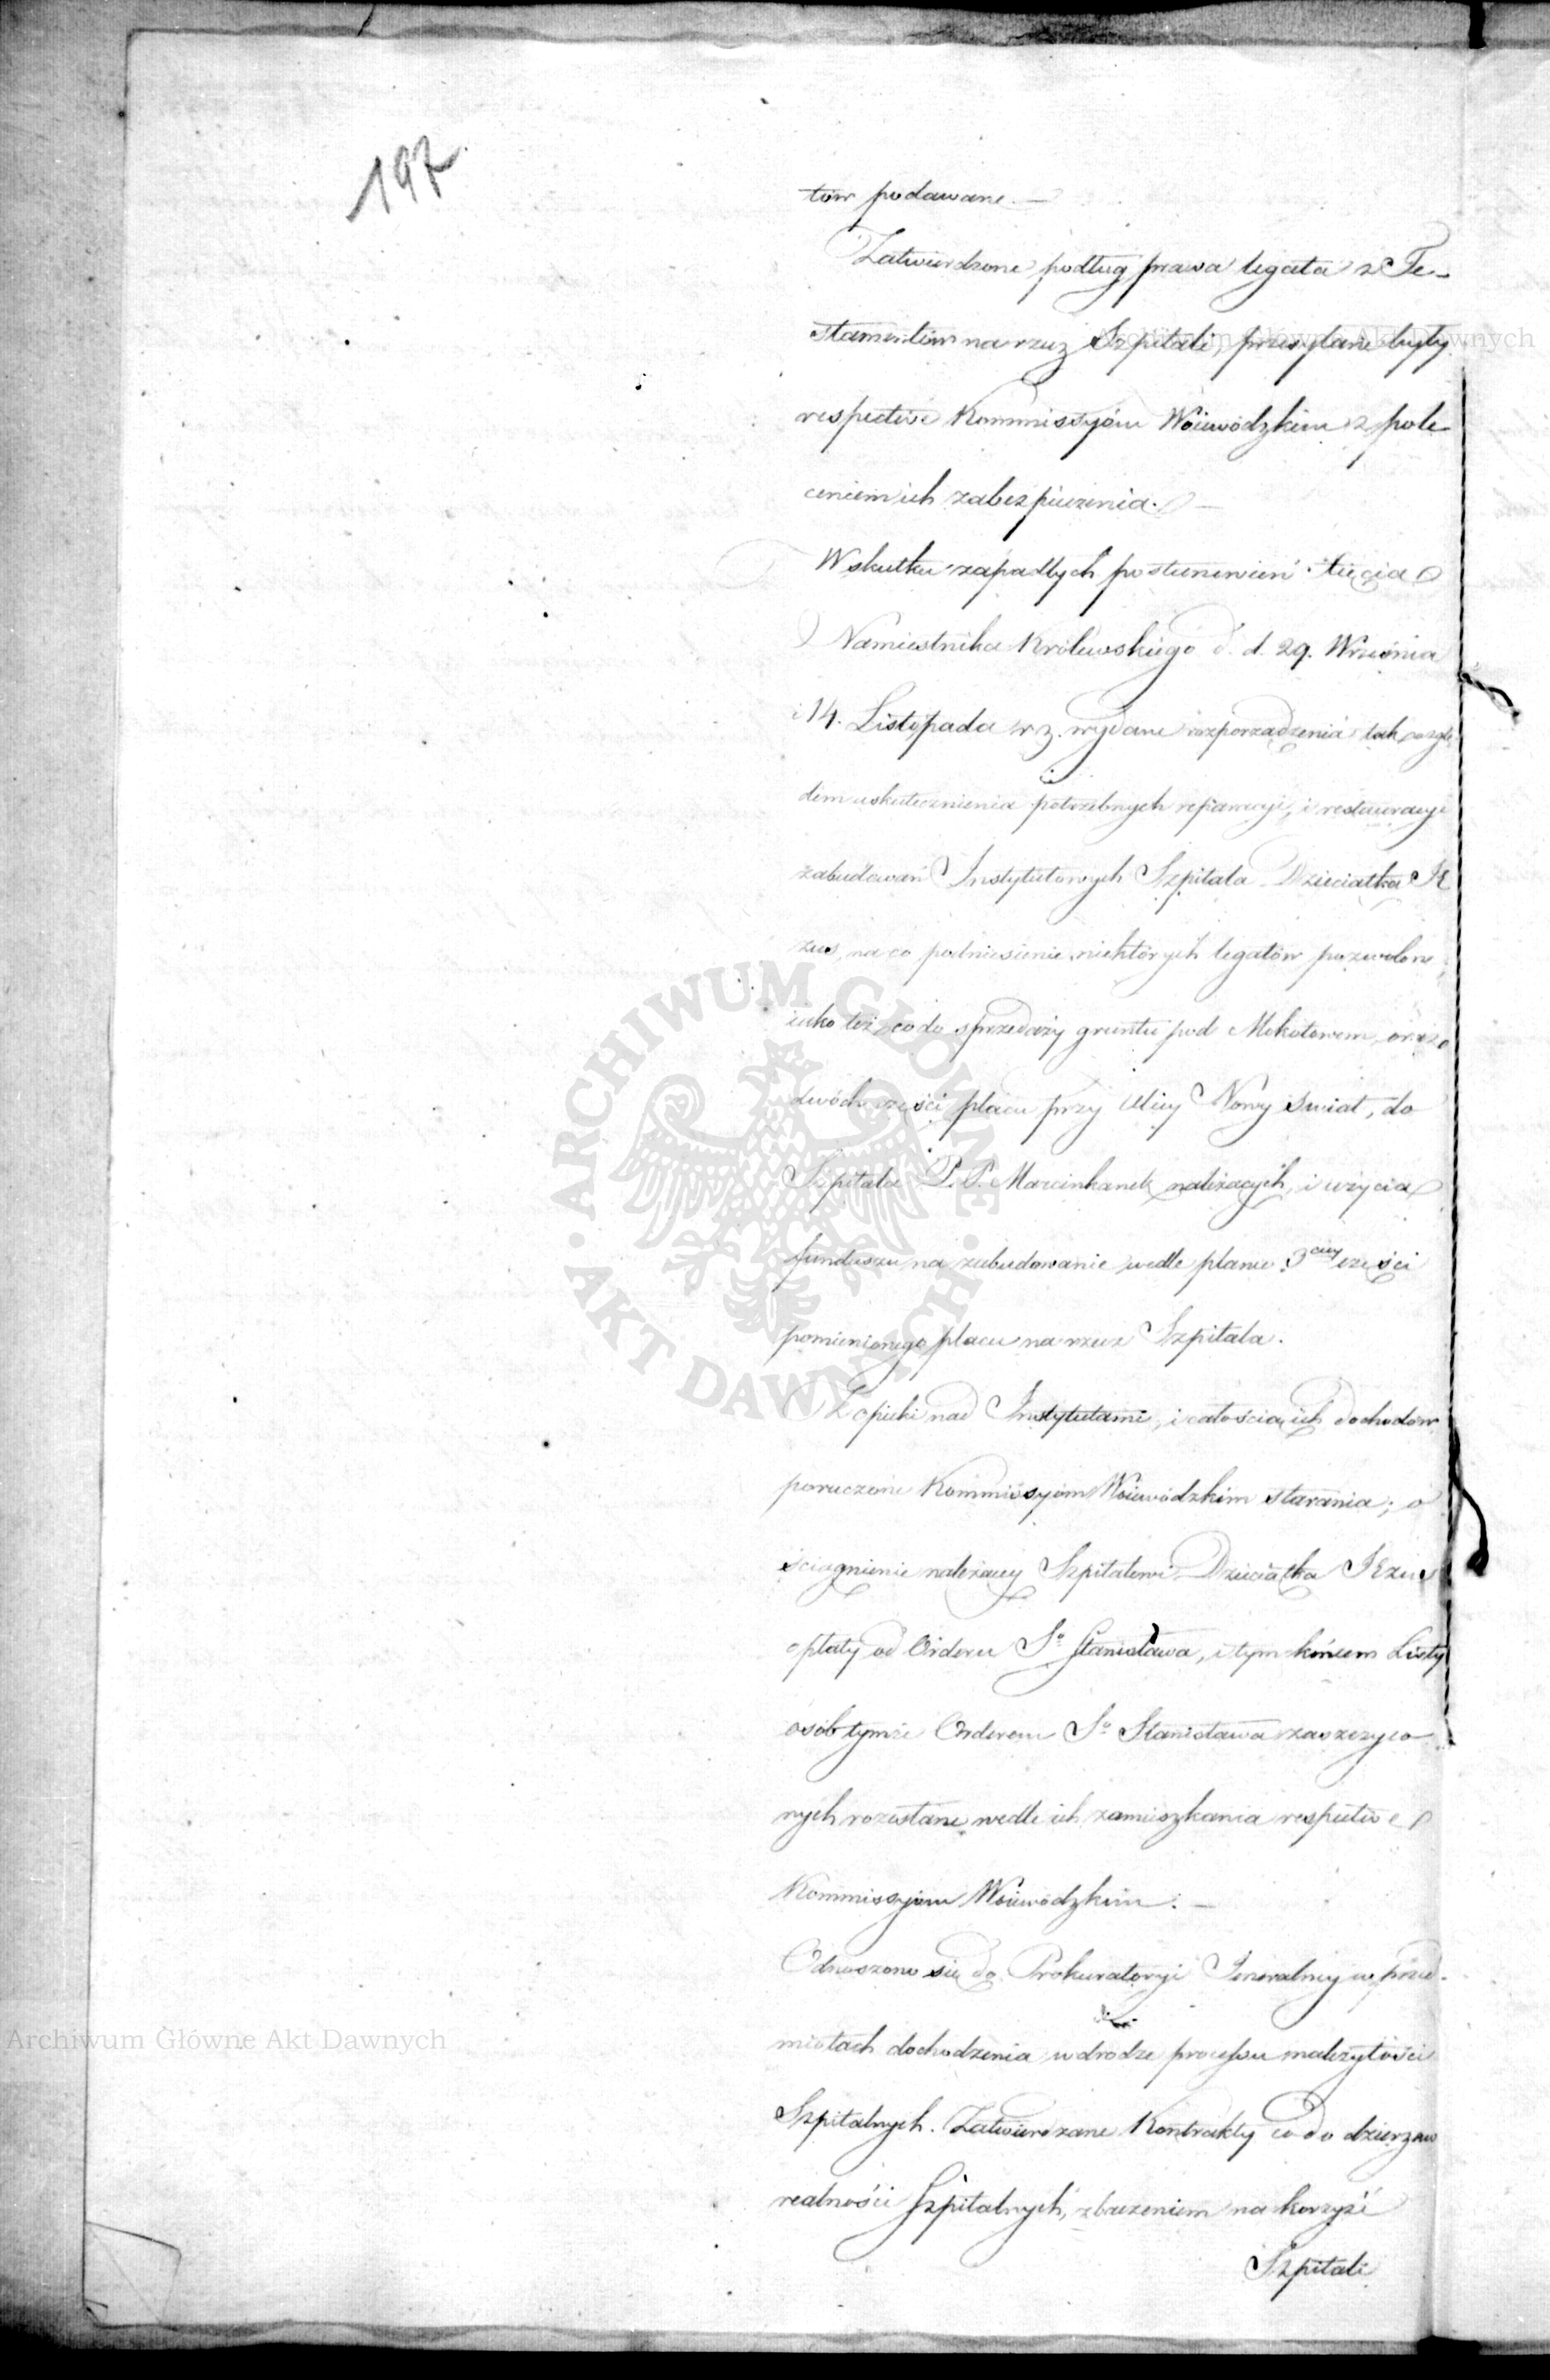 197
tów podawane. —
Zatwierdzone podług prawa legata z Te-
stamentów na rzecz Szpitali, przesyłane były
respective Kommissyóm Woiewódzkim z pole
ceniem ich zabezpieczenia. —
W skutku zapadłych postanowień Xięcia
Namiestnika Królewskiego d. d. 29. Września
i 14. Listopada r. z. wydane rozporządzenia tak wzglę
dem uskutecznienia potrzebnych reparacyi, i restauracyi
zabudowań Instytutowych Szpitala Dzieciątka Je
zus, na co podniesienie niektórych legatów pozwolono
iako też co do sprzedaży gruntu pod Mokotowem, oraz
dwóch części placu przy Ulicy Nowy Swiat, do
Szpitala P. P. Marcinkanek należących, i użycia
funduszu na zabudowanie wedle planu 3ciey części
pomienionego placu na rzecz Szpitala.
Z opieki nad Instytutami, i całością ich dochodów
poruczone Kommissyóm Woiewódzkim starania; o
ściągnienie należącey Szpitalowi Dzieciątka Jezus
opłaty od Orderu Sº Stanisława, i tym końcem Listy
osób tymże Orderem Sº Stanisława zaszczyco
nych rozesłane wedle ich zamieszkania respective
Kommissyóm Woiewódzkim. —
Odnoszono się do Prokuratoryi Jeneralney w przed-
miotach dochodzenia w drodze processu należytości
Szpitalnych. Zatwierdzane Kontrakty co do dzierzaw
realności Szpitalnych, z baczeniem na korzyść
Szpitali
Archiwum Główne Akt Dawnych
ARCHIWUM GŁÓWNE AKT DAWNYCH
Archiwum Główne Akt Dawnych